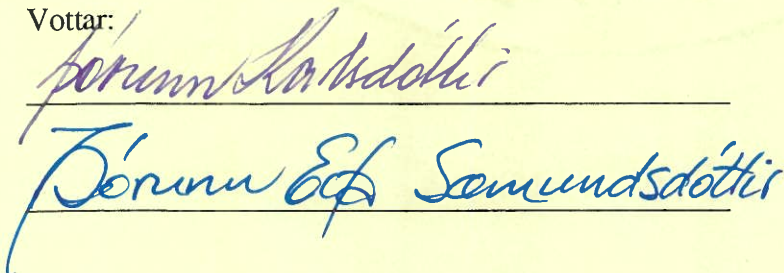 Vottar:
Þórunn Karlsdóttir
Þórunn Eva Sæmundsdóttir